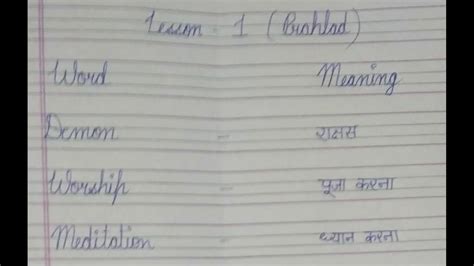 Lesson - 1 (Prahlad)
Word Meaning
Demon - राक्षस
Worship - पूजा करना
Meditation - ध्यान करना